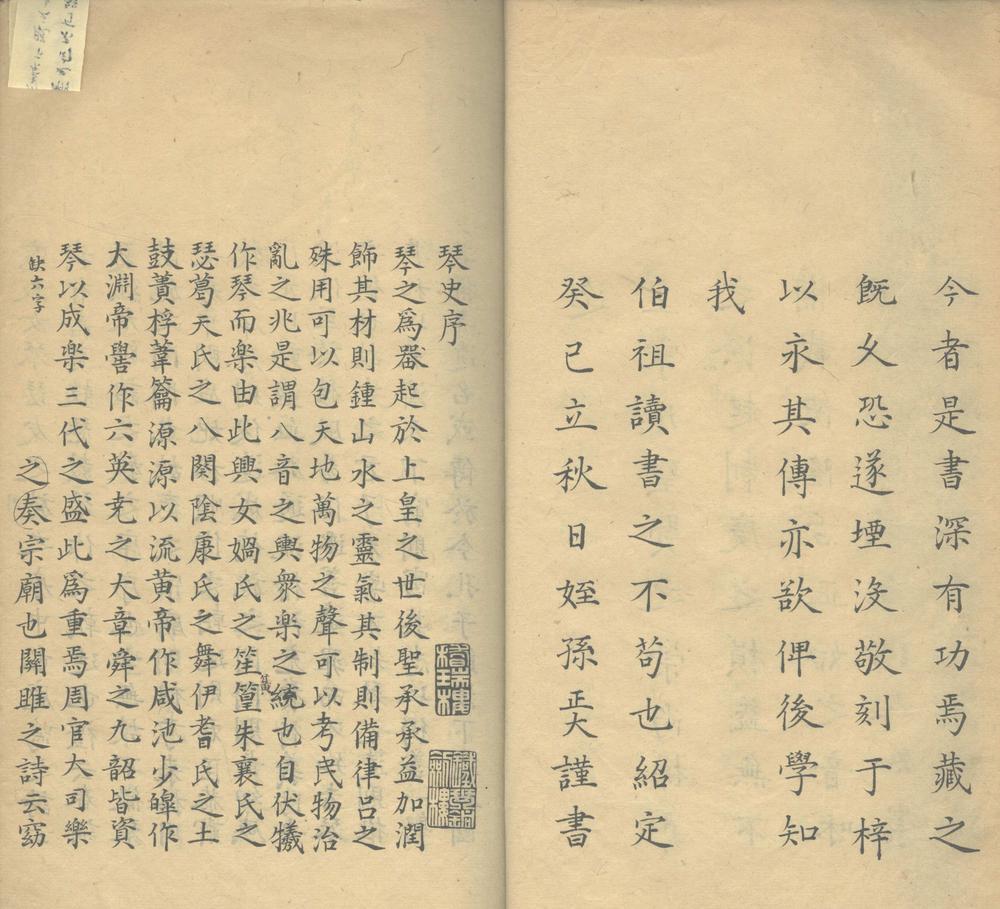 今者是書深有功焉藏之
既久恐遂堙没敬刻于梓
以永其傳亦欲俾後學知
我
伯祖讀書之不苟也紹定
癸巳立秋日姪孫正大謹書
琴史序
琴之爲器起於上皇之世後聖承承益加潤
飾其材則鍾山水之靈氣其制則備律呂之
殊用可以包天地萬物之聲可以考民物治
亂之兆是謂八音之輿衆楽之統也自伏犧
作琴而楽由此興女媧氏之笙篁朱襄氏之
簧
瑟葛天氏之八闋陰康氏之舞伊耆氏之土
鼓蕢桴葦籥源源以流黄帝作咸池少皥作
大淵帝嚳作六英尭之大章舜之九韶皆資
琴以成楽三代之盛此爲重焉周官大司樂
缺六字
之奏宗廟也關雎之詩云窈